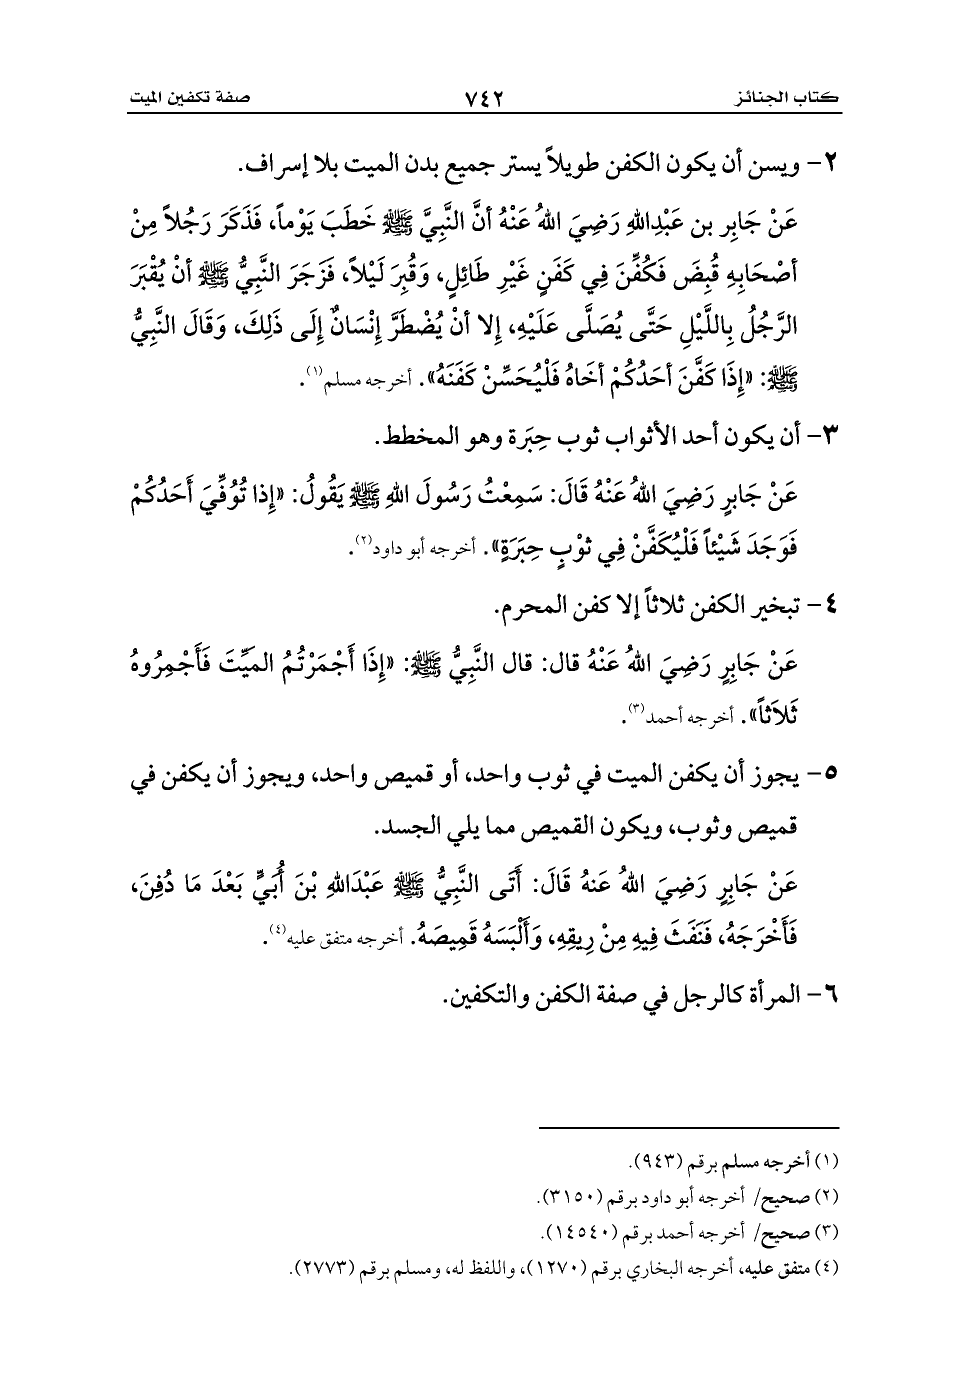 كتاب الجنائز ٧٤٢ صفة تكفين الميت
٢- ويسن أن يكون الكفن طويلاً يستر جميع بدن الميت بلا إسراف.
عَنْ جَابِر بن عَبْدِاللهِ رَضِيَ اللهُ عَنْهُ أنَّ النَّبِيَّ ﷺ خَطَبَ يَوْماً، فَذَكَرَ رَجُلاً مِنْ
أصْحَابِهِ قُبِضَ فَكُفِّنَ فِي كَفَنٍ غَيْرِ طَائِلٍ، وَقُبِرَ لَيْلاً، فَزَجَرَ النَّبِيُّ ﷺ أنْ يُقْبَرَ
الرَّجُلُ بِاللَّيْلِ حَتَّى يُصَلَّى عَلَيْهِ، إِلا أنْ يُضْطَرَّ إِنْسَانٌ إِلَى ذَلِكَ، وَقَالَ النَّبِيُّ
ﷺ: «إِذَا كَفَّنَ أحَدُكُمْ أخَاهُ فَلْيُحَسِّنْ كَفَنَهُ». أخرجه مسلم(١).
٣- أن يكون أحد الأثواب ثوب حِبَرَة وهو المخطط.
عَنْ جَابِرٍ رَضِيَ اللهُ عَنْهُ قَالَ: سَمِعْتُ رَسُولَ اللهِ ﷺ يَقُولُ: «إِذا تُوُفِّيَ أَحَدُكُمْ
فَوَجَدَ شَيْئاً فَلْيُكَفَّنْ فِي ثوْبٍ حِبَرَةٍ». أخرجه أبو داود(٢).
٤- تبخير الكفن ثلاثاً إلا كفن المحرم.
عَنْ جَابِرٍ رَضِيَ اللهُ عَنْهُ قال: قال النَّبِيُّ ﷺ: «إِذَا أَجْمَرْتُمُ المَيِّتَ فَأَجْمِرُوهُ
ثَلاَثاً». أخرجه أحمد(٣).
٥- يجوز أن يكفن الميت في ثوب واحد، أو قميص واحد، ويجوز أن يكفن في
قميص وثوب، ويكون القميص مما يلي الجسد.
عَنْ جَابِرٍ رَضِيَ اللهُ عَنهُ قَالَ: أَتَى النَّبِيُّ ﷺ عَبْدَاللهِ بْنَ أُبَيٍّ بَعْدَ مَا دُفِنَ،
فَأَخْرَجَهُ، فَنَفَثَ فِيهِ مِنْ رِيقِهِ، وَأَلْبَسَهُ قَمِيصَهُ. أخرجه متفق عليه(٤).
٦- المرأة كالرجل في صفة الكفن والتكفين.
(١) أخرجه مسلم برقم (٩٤٣).
(٢) صحيح/ أخرجه أبو داود برقم (٣١٥٠).
(٣) صحيح/ أخرجه أحمد برقم (١٤٥٤٠).
(٤) متفق عليه، أخرجه البخاري برقم (١٢٧٠)، واللفظ له، ومسلم برقم (٢٧٧٣).